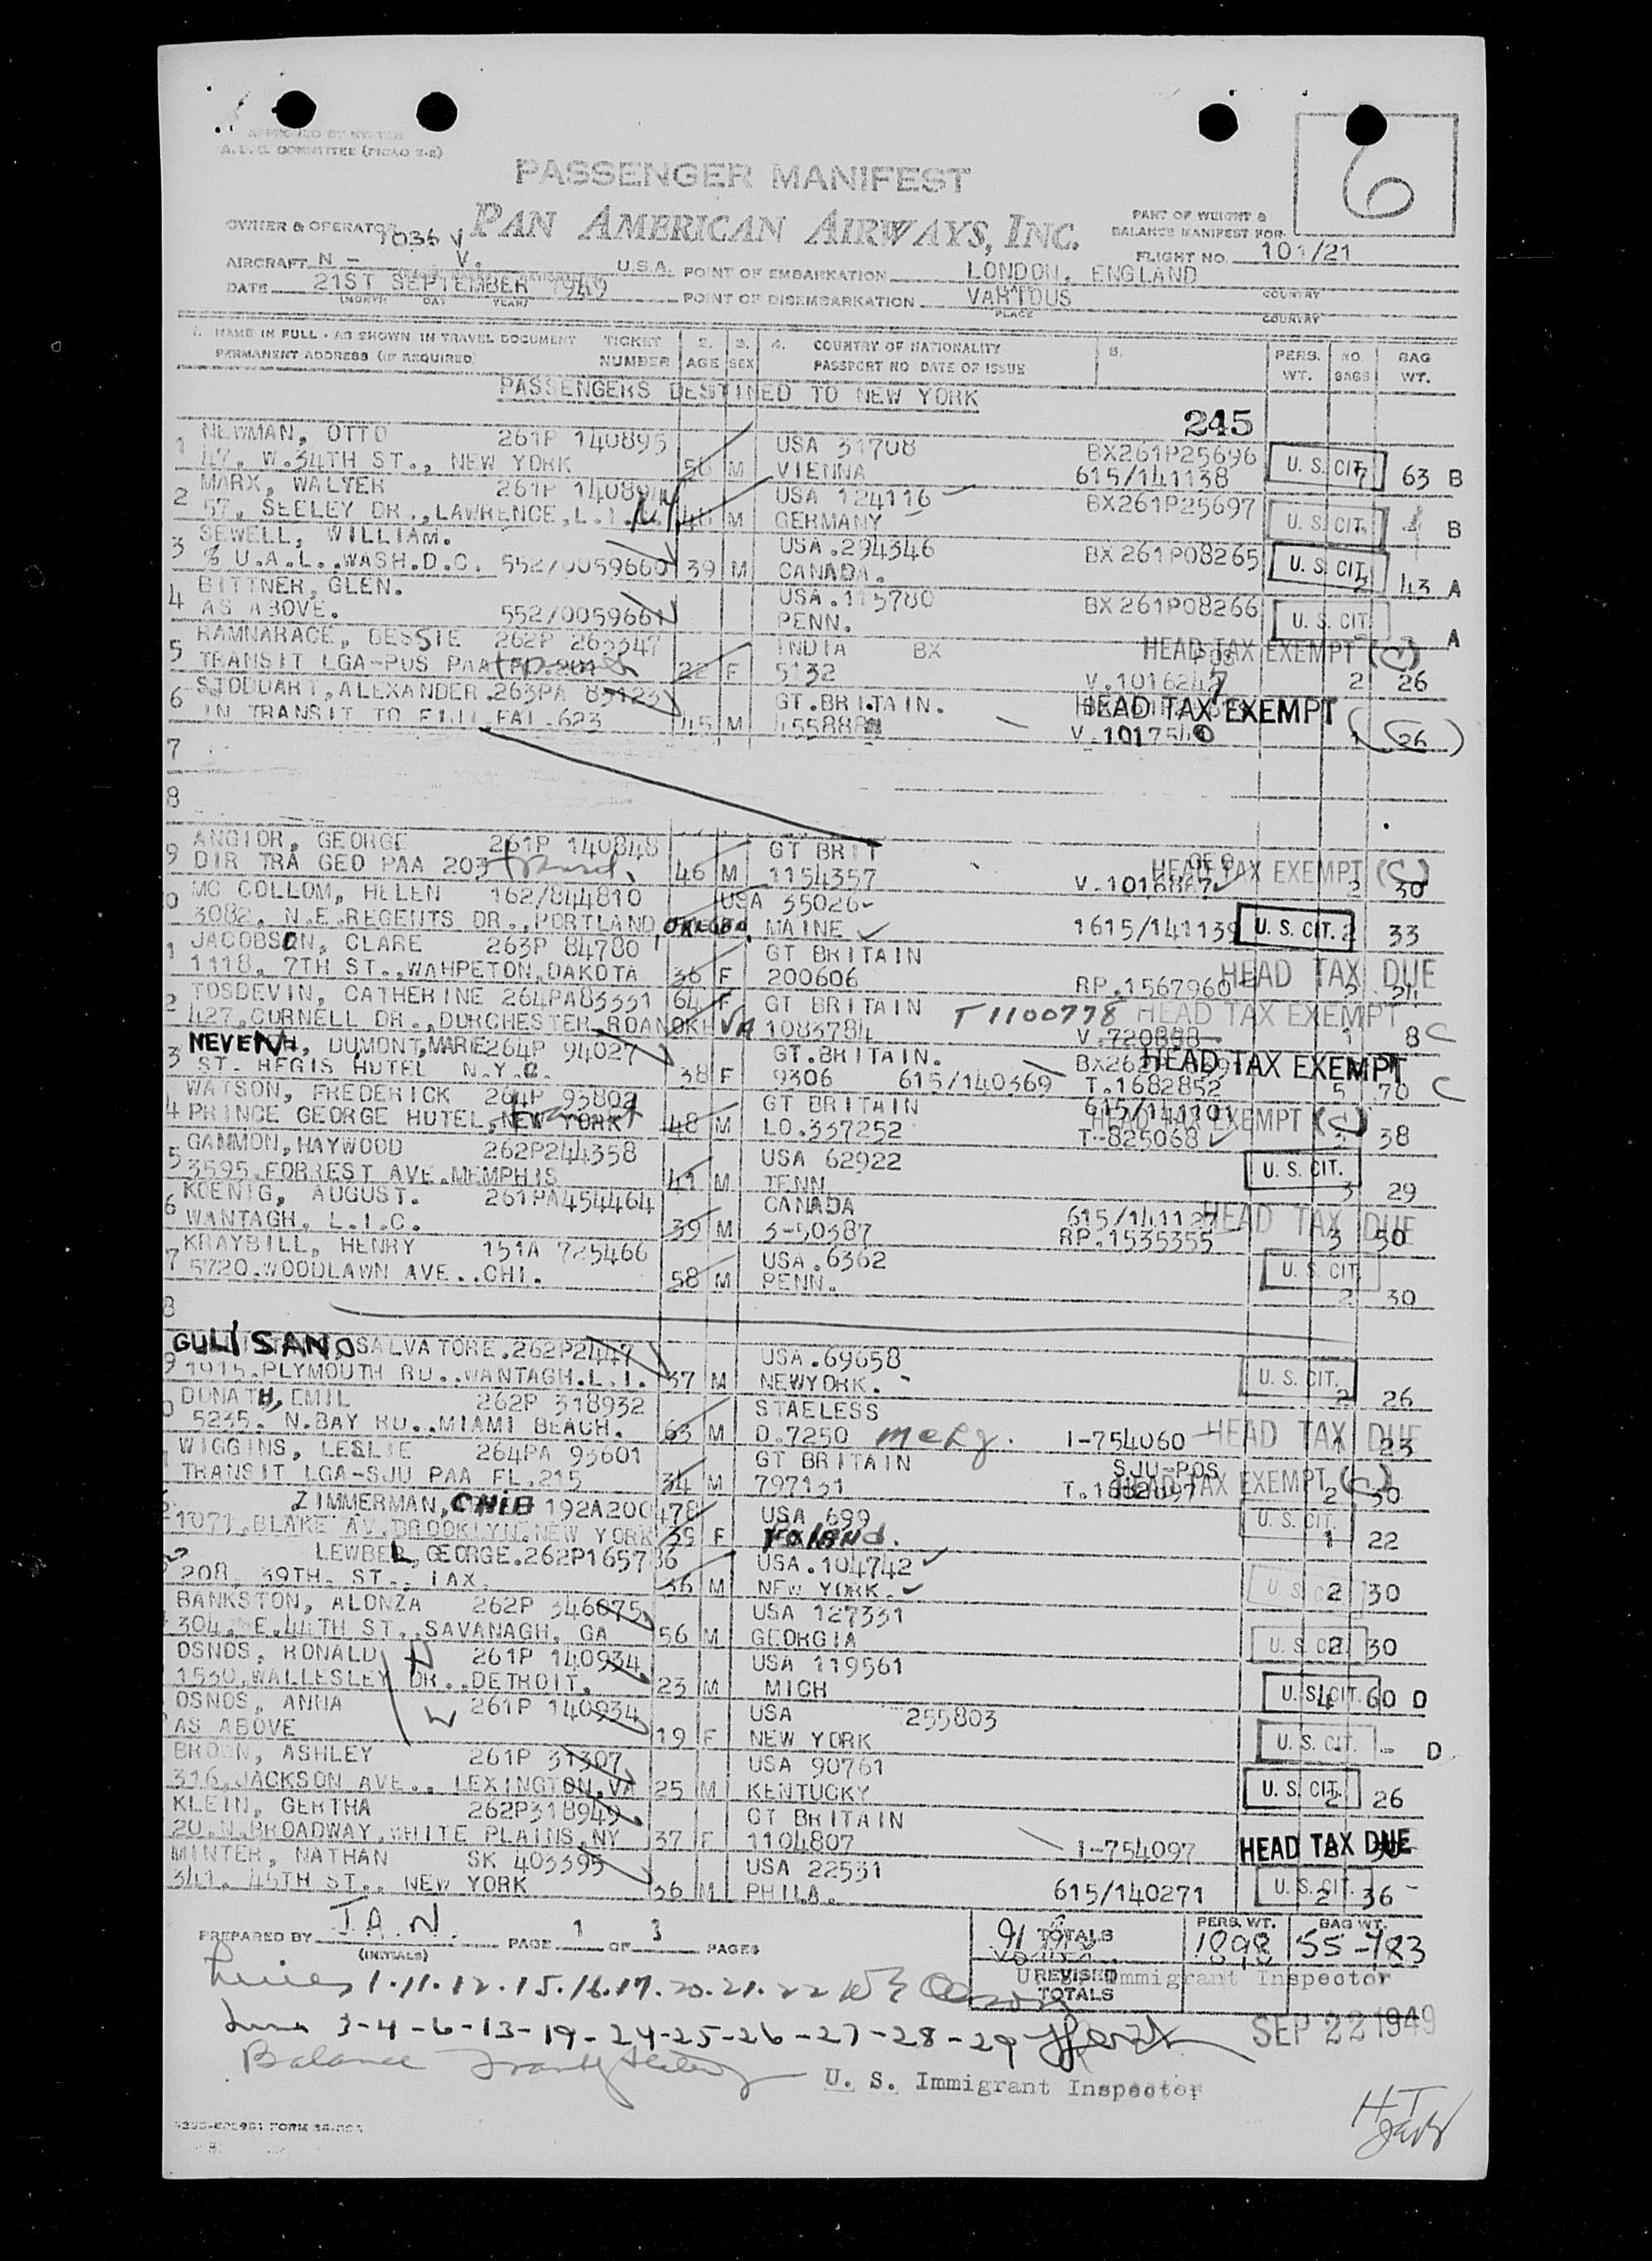 APPROVED BY SYSTEM
A.L.C. COMMITTEE (PICAO 2-2)
6
PASSENGER MANIFEST
OWNER & OPERATOR PAN AMERICAN AIRWAYS, INC.
PART OF WEIGHT &
BALANCE MANIFEST FOR
1036 V
AIRCRAFT N - V. U.S.A. POINT OF EMBARKATION LONDON, ENGLAND FLIGHT NO. 101/21
DATE 21ST SEPTEMBER 1949 POINT OF DISEMBARKATION VARIOUS COUNTRY
(MONTH DAY YEAR) PLACE COUNTRY
1. NAME IN FULL - AS SHOWN IN TRAVEL DOCUMENT TICKET 2. 3. 4. COUNTRY OF NATIONALITY 5. PERS. NO. BAG
PERMANENT ADDRESS (IF REQUIRED) NUMBER AGE SEX PASSPORT NO DATE OF ISSUE WT. BAGS WT.
PASSENGERS DESTINED TO NEW YORK
245
1 NEWMAN, OTTO 261P 140893 USA 31708 BX261P25696 U. S. CIT.
47, W.34TH ST., NEW YORK 56 M VIENNA 615/141138 63 B
2 MARX, WALTER 261P 140894 USA 124116 BX261P25697 U. S. CIT.
57, SEELEY DR.,LAWRENCE,L.I. M GERMANY B
3 SEWELL, WILLIAM. USA.294346 BX 261P08265 U. S. CIT.
% U.A.L..WASH.D.C. 552/0059660 39 M CANADA. 2 43 A
4 BITTNER, GLEN. USA.115780 BX 261P08266 U. S. CIT.
AS ABOVE. 552/0059661 PENN. A
5 RAMNARACE, BESSIE 262P 265347 INDIA BX HEAD TAX EXEMPT (C)
TRANSIT LGA-POS PAA 22 F 5132 V.1016247 2 26
6 STODDART, ALEXANDER.263PA 85123 GT.BRITAIN. HEAD TAX EXEMPT
IN TRANSIT TO FIJI.FAI.623 45 M V.1017540 1 (26)
7
8
9 ANGIOR, GEORGE 261P 140848 GT BRIT GEO HEAD TAX EXEMPT (C)
DIR TRA GEO PAA 203 Transit. 46 M 1154357 V.1016867 2 30
0 MC COLLOM, HELEN 162/844810 USA 35026
3082, N.E.REGENTS DR.,PORTLAND,OREGON, MAINE 1615/141139 U. S. CIT. 2 33
1 JACOBSON, CLARE 263P 84780 GT BRITAIN
1118, 7TH ST.,WAHPETON,DAKOTA 36 F 200606 RP.1567960 HEAD TAX DUE 2 24
2 TOSDEVIN, CATHERINE 264PA83331 64 F GT BRITAIN T1100778 HEAD TAX EXEMPT
427,CORNELL DR.,DORCHESTER,ROANOKE VA 1083784 V.720888 1 8 C
3 NEVEN, DUMONT,MARIE264P 94027 GT.BRITAIN. HEAD TAX EXEMPT
ST. REGIS HOTEL N.Y.C. 38 F 9306 615/140369 T.1682852 5 70 C
4 WATSON, FREDERICK 264P 93802 GT BRITAIN 615/141101 HEAD TAX EXEMPT (C)
PRINCE GEORGE HOTEL,NEW YORK 48 M LO.337252 T-825068 38
5 GAMMON,HAYWOOD 262P244358 USA 62922 U. S. CIT.
3595.FORREST AVE.MEMPHIS 41 M TENN 3 29
6 KOENIG, AUGUST. 261PA454464 CANADA 615/141127 HEAD TAX DUE
WANTAGH, L.I.C. 39 M 3-50387 RP.1535355 3 50
7 KRAYBILL, HENRY 151A 725466 USA.6362 U. S. CIT.
5720.WOODLAWN AVE..CHI. 58 M PENN. 2 30
8
9 GULISANO SALVATORE.262P2447 USA.69658 U. S. CIT.
1915.PLYMOUTH RD..WANTAGH.L.I. 37 M NEWYORK. 2 26
0 DONATH, EMIL 262P 318932 STAELESS HEAD TAX DUE
5235. N.BAY RD..MIAMI BEACH. 63 M D.7250 I-754060 1 23
WIGGINS, LESLIE 264PA 93601 GT BRITAIN SJU-POS HEAD TAX EXEMPT (C)
TRANSIT LGA-SJU PAA FL.215 34 M 797131 T.1682097 2 30
ZIMMERMAN, 192A200478 USA 699 U. S. CIT.
1071,BLAKE AV.BROOKLYN.NEW YORK 39 F Poland. 1 22
LEWBEL, GEORGE.262P165786 USA.104742
208, 39TH. ST., IAX. 36 M NEW YORK. 2 30
BANKSTON, ALONZA 262P 346075 USA 127331
304, E.44TH ST.,SAVANAGH, GA 56 M GEORGIA U. S. CIT. 2 30
OSNOS, RONALD 261P 140934 USA 119561
1530.WALLESLEY DR..DETROIT. 23 M MICH U. S. CIT. 4 60 D
OSNOS, ANNA 261P 140934 USA 255803
AS ABOVE 19 F NEW YORK U. S. CIT. - D
BROWN, ASHLEY 261P 31307 USA 90761
316.JACKSON AVE., LEXINGTON,VA 25 M KENTUCKY U. S. CIT. 2 26
KLEIN, GERTHA 262P318949 GT BRITAIN
20.N.BROADWAY.WHITE PLAINS.NY 37 F 1104807 I-754097 HEAD TAX DUE
MINTER, NATHAN SK 403395 USA 22531
341, 45TH ST., NEW YORK 36 M PHILA. 615/140271 U. S. CIT. 2 36
PREPARED BY J.A.N. PAGE 1 OF 3 PAGES TOTALS PERS. WT. 1898 BAG WT. 55-783
(INITIALS)
REVISED TOTALS
U. S. Immigrant Inspector
Lines 1.11.12.15.16.17.20.21.22
Lines 3-4-6-13-19-24-25-26-27-28-29
SEP 22 1949
Balance
U. S. Immigrant Inspector